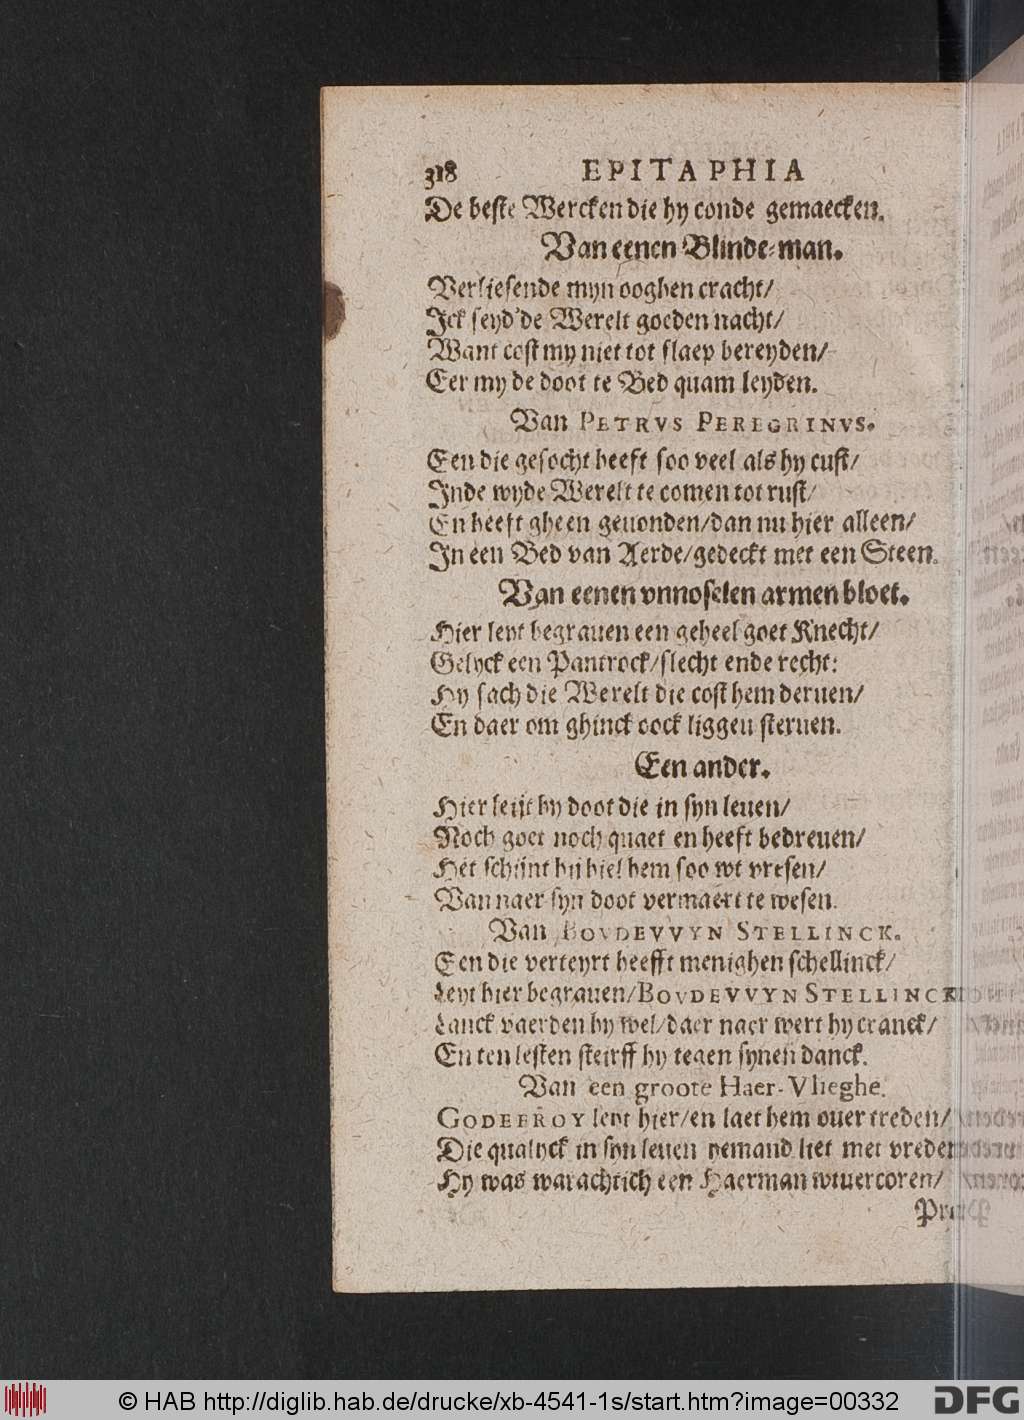 318 EPITAPHIA
De beste Wercken die hy conde gemaecken.
Van eenen Blinde-man.
Verliesende myn ooghen cracht/
Ick seyd'de Werelt goeden nacht/
Want cost my niet tot slaep bereyden/
Eer my de doot te Bed quam leyden.
Van PETRVS PEREGRINVS.
Een die gesocht heeft soo veel als hy cust/
Inde wyde Werelt te comen tot rust/
En heeft gheen geuonden/dan nu hier alleen/
In een Bed van Aerde/gedeckt met een Steen.
Van eenen vnnoselen armen bloet.
Hier leyt begrauen een geheel goet Knecht/
Gelyck een Pantrock/slecht ende recht:
Hy sach die Werelt die cost hem deruen/
En daer om ghinck oock liggen steruen.
Een ander.
Hier leijt hy doot die in syn leuen/
Noch goet noch quaet en heeft bedreuen/
Het schijnt hij hiel hem soo wt vresen/
Van naer syn doot vermaert te wesen.
Van BOVDEVVYN STELLINCK.
Een die verteyrt heefft menighen schellinck/
Leyt hier begrauen/BOVDEVVYN STELLINCK
Lanck vaerden hy wel/daer naer wert hy cranck/
En ten lesten steirff hy tegen synen danck.
Van een groote Haer-Vlieghe.
GODEFROY leyt hier/en laet hem ouer treden/
Die qualyck in syn leuen yemand liet met vreden
Hy was warachtich een Haerman wtuercoren/
© HAB http://diglib.hab.de/drucke/xb-4541-1s/start.htm?image=00332
DFG